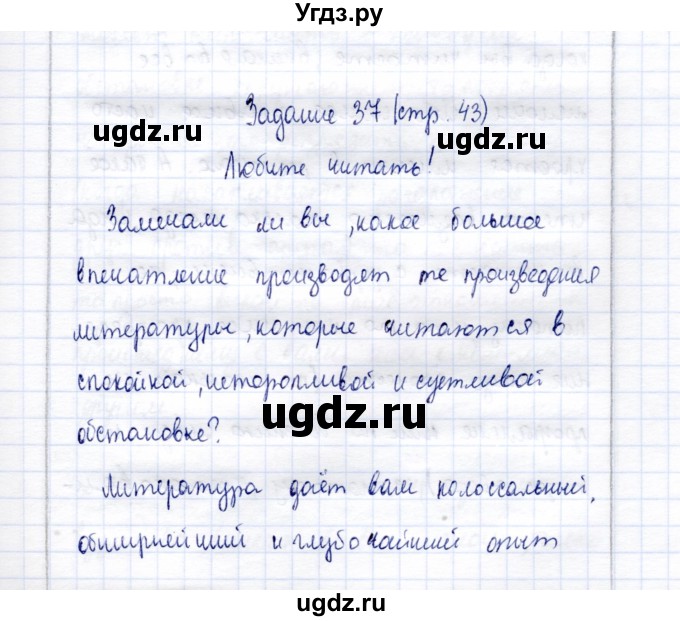 Угдз.ру
Задание 37 (стр. 43)
ugdz.ru
ugdz.ru
Любите читать!
Замечали ли вы, какое большое
впечатление производят те произведения
литературы, которые читаются в
спокойной, неторопливой и суетливой
ugdz.ru
обстановке?
Литература даёт вам колоссальный,
обширнейший и глубочайший опыт
ugdz.ru